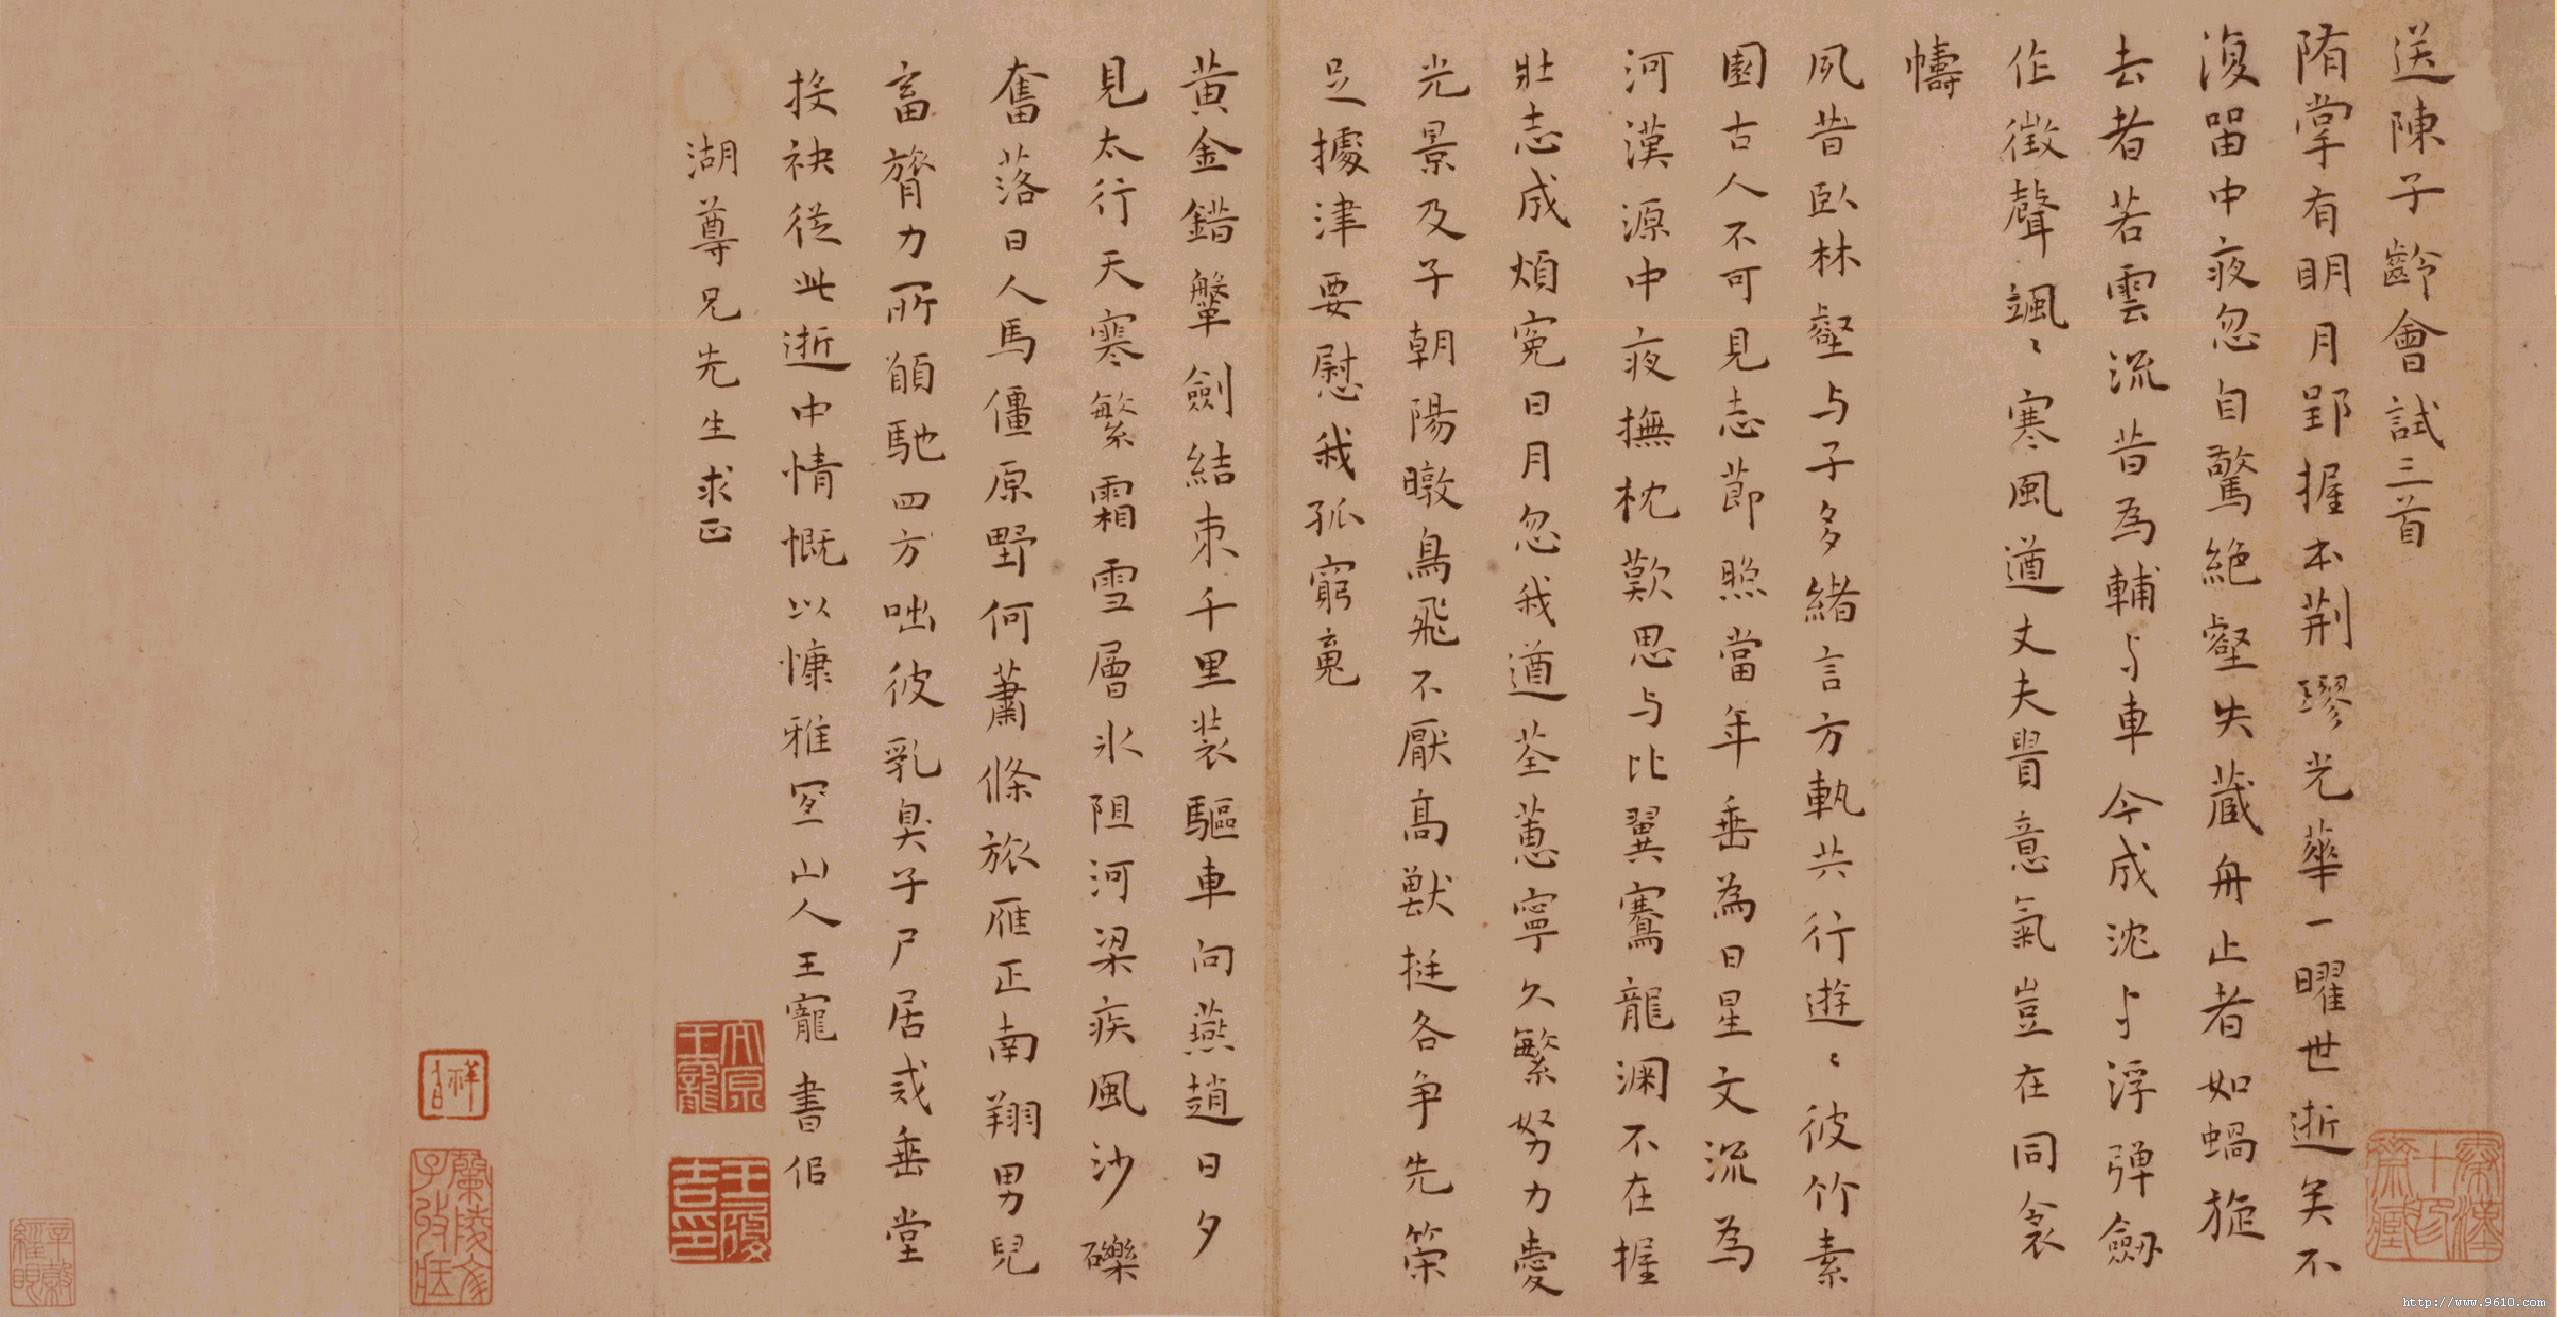 送陳子齡會試三首
隋掌有明月郢握本荆璆光華一曜世逝矣不
復留中夜忽自驚絶壑失藏舟止者如蝸旋
去者若雲流昔為輔與車今成沈與浮彈劒
作徵聲颯〻寒風遒丈夫貴意氣豈在同衾
幬
夙昔臥林壑与子多緒言方執共行遊〻彼竹素
園古人不可見志節照當年垂為日星文流為
河漢源中夜撫枕歎思与比翼騫龍淵不在握
壯志成煩冤日月忽我遒荃蕙寧久繁努力愛
光景及子朝陽暾鳥飛不厭高獸挺各争先策
足據津要慰我孤窮䰟
黄金錯鞶劍結束千里装驅車向燕趙日夕
見太行天寒繁霜雪層冰阻河梁疾風沙礫
奮落日人馬僵原野何蕭條旅雁正南翔男兒
畜膂力所願馳四方咄彼乳臭子尸居戒垂堂
投袂從此逝中情慨以慷雅宜山人王寵書似
湖尊兄先生求正
太原王寵
王履吉印
http://www.9610.com